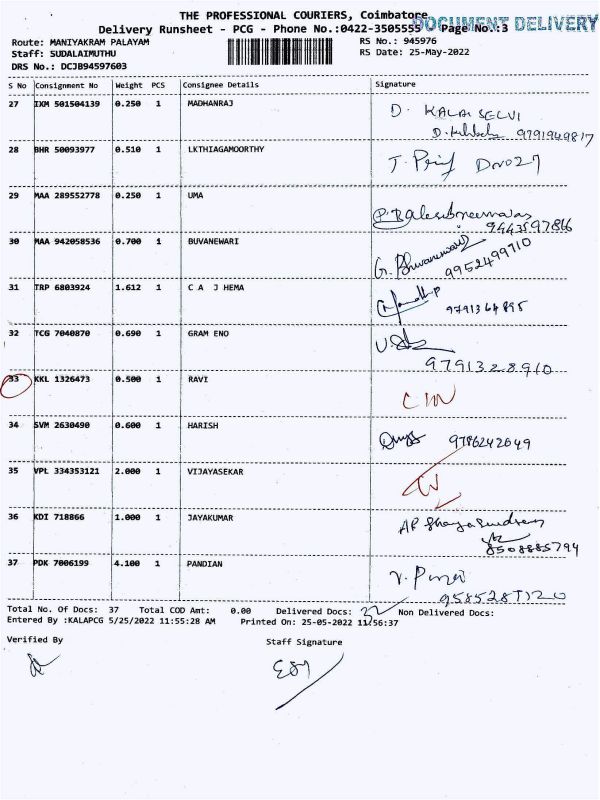 THE PROFESSIONAL COURIERS, Coimbatore
DOCUMENT DELIVERY
Delivery Runsheet - PCG - Phone No.:0422-3505555 Page No.:3
Route: MANIYAKRAM PALAYAM RS No.: 945976
Staff: SUDALAIMUTHU RS Date: 25-May-2022
DRS No.: DCJB94597603
S No Consignment No Weight PCS Consignee Details Signature
27 IXM 501504139 0.250 1 MADHANRAJ D. KALAI SELVI
9791949817
28 BHR 50093977 0.510 1 LKTHIAGAMOORTHY
29 MAA 289552778 0.250 1 UMA
9443597866
30 MAA 942058536 0.700 1 BUVANEWARI G. Bhuvaneswari
9952499710
31 TRP 6803924 1.612 1 C A J HEMA 9791364895
32 TCG 7040870 0.690 1 GRAM ENO
9791328910
33 KKL 1326473 0.500 1 RAVI
34 SVM 2630490 0.600 1 HARISH 9786242649
35 VPL 334353121 2.000 1 VIJAYASEKAR
36 KDI 718866 1.000 1 JAYAKUMAR
8508885794
37 PDK 7006199 4.100 1 PANDIAN
Total No. Of Docs: 37 Total COD Amt: 0.00 Delivered Docs: Non Delivered Docs:
Entered By :KALAPCG 5/25/2022 11:55:28 AM Printed On: 25-05-2022 11:56:37
Verified By Staff Signature